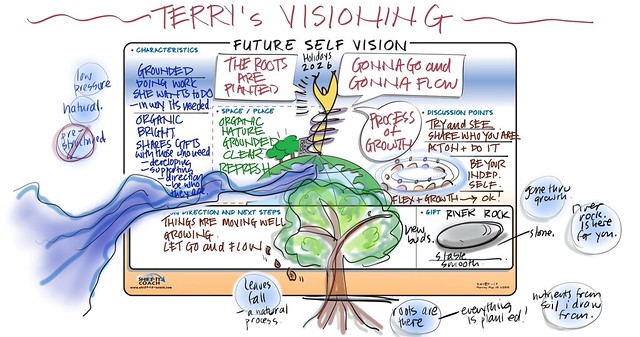 TERRY's VISIONING
FUTURE SELF VISION
• CHARACTERISTICS
GROUNDED
DOING WORK
SHE WANTS TO DO
- in way its needed.
ORGANIC
BRIGHT
SHARES GIFTS
with those who need
- developing
- supporting
- direction
- be who
they are
low
pressure
natural.
pre-
structured
THE ROOTS
ARE
PLANTED
Holidays
2026
GONNA GO and
GONNA FLOW
• SPACE / PLACE
ORGANIC
NATURE
GROUNDED
CLEAR
REFRESH
PROCESS
OF
GROWTH
• DISCUSSION POINTS
TRY and SEE
SHARE WHO YOU ARE
ACT ON + DO IT
BE YOUR
INDEP.
SELF.
FLEX + GROWTH → OK!
DIRECTION AND NEXT STEPS
THINGS ARE MOVING WELL
GROWING.
LET GO and FLOW
new
buds.
• GIFT
RIVER ROCK
stable
smooth
stone.
gone thru
growth
river
rock is here
for you.
SHIFT-IT
COACH
www.shift-it-coach.com
leaves
fall
- a natural
process.
roots are
there
- everything
is planted!
nutrients from
soil i draw
from.